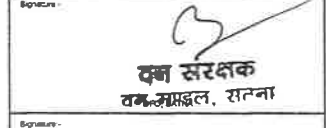 Signature -
वन संरक्षक
वन मण्डल, सतना
Signature -